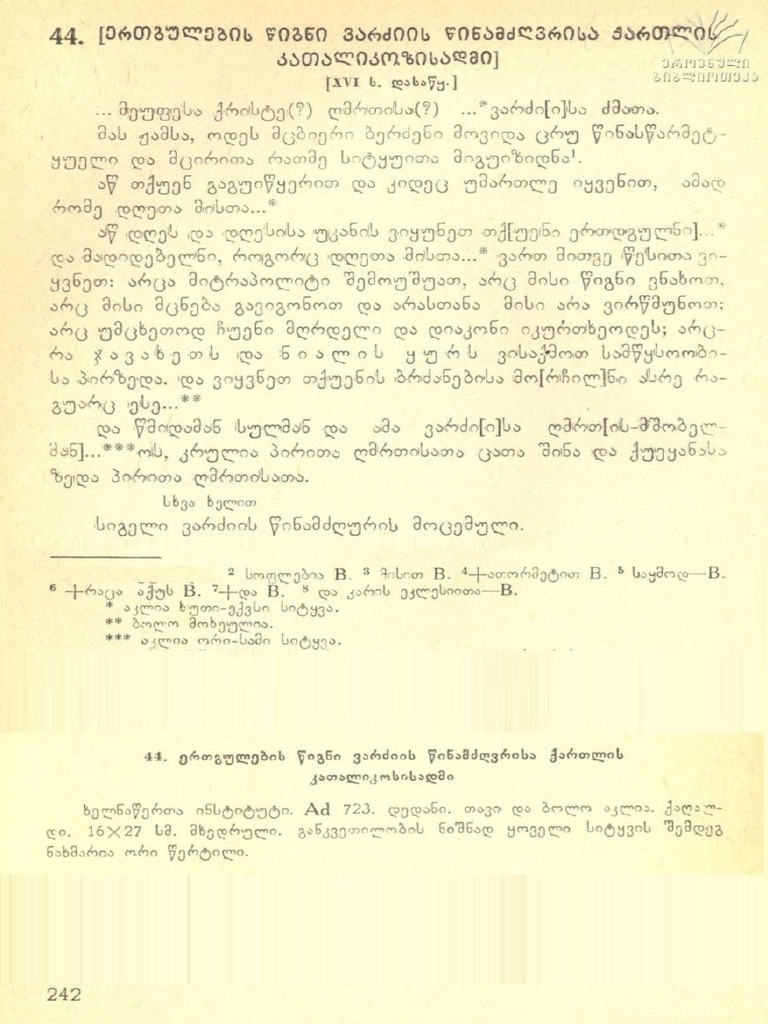 44. [ერთგულების წიგნი ვარძიის წინამძღვრისა ქართლის
კათალიკოზისადმი]
ეროვნული
ბიბლიოთეკა
[XVI ს. დასაწყ.]
... მეუფესა ქრისტე(?) ღმრთისა(?) ...*ვარძი[ი]სა ძმათა.
მას ჟამსა, ოდეს მცბიერი ბერძენი მოვიდა ცრუ წინასწარმეტ-
ყუელი და მცირითა რათმე სიტყუითა მიგუიზიდნა¹.
აწ თქუენ გაგუიწყერით და კიდეც უმართლე იყვენით, ამად
რომე დღეთა მისთა...*
აწ დღეს და დღესისა უკანის ვიყუნეთ თქ[უენი ერთდგულნი]...*
და მადიდებელნი, როგორც დღეთა მისთა...* ვართ მითვე წესითა ვი-
ყვნეთ: არცა მიტრაპოლიტი შემოუშუათ, არც მისი წიგნი ვნახოთ,
არც მისი მცნება გავიგონოთ და არასთანა მისი არა ვირწმუნოთ;
არც უმცხეთოდ ჩუენი მღრდელი და დიაკონი იკურთხეოდეს; არც-
რა ჯავახეთს და ნიალის ყურს ვისაქმოთ სამწყსოობი-
სა პირზედა. და ვიყვნეთ თქუენის ბრძანებისა მო[რჩილ]ნი ასრე რა-
გუარც ესე...**
და წმიდამან სულმან და ამა ვარძი[ი]სა ღმრთ[ის-მშობელ-
მან]...***ოს, კრულია პირითა ღმრთისათა ცათა შინა და ქუეყანასა
ზედა პირითა ღმრთისათა.
სხვა ხელით
სიგელი ვარძიის წინამძღურის მოცემული.
² სოფლებია B. ³ მისით B. ⁴+ათორმეტით B. ⁵ საყმოდ—B.
⁶ +რაცა აქუს B. ⁷+და B. ⁸ და კარის ეკლესიითა—B.
* აკლია ხუთი-ექვსი სიტყვა.
** ბოლო მოხეულია.
*** აკლია ორი-სამი სიტყვა.
44. ერთგულების წიგნი ვარძიის წინამძღვრისა ქართლის
კათალიკოსისადმი
ხელნაწერთა ინსტიტუტი. Ad 723. დედანი. თავი და ბოლო აკლია. ქაღალ-
დი. 16×27 სმ. მხედრული. განკვეთილობის ნიშნად ყოველი სიტყვის შემდეგ
ნახმარია ორი წერტილი.
242